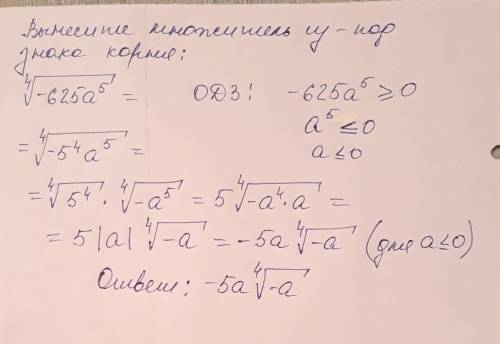 Вынесите множитель из-под
знака корня:
∜(-625a⁵) = ОДЗ: -625a⁵ ≥ 0
a⁵ ≤ 0
= ∜(-5⁴a⁵) = a ≤ 0
= ∜(5⁴) · ∜(-a⁵) = 5∜(-a⁴·a) =
= 5|a| ∜(-a) = -5a ∜(-a) (для a≤0)
Ответ: -5a ∜(-a)